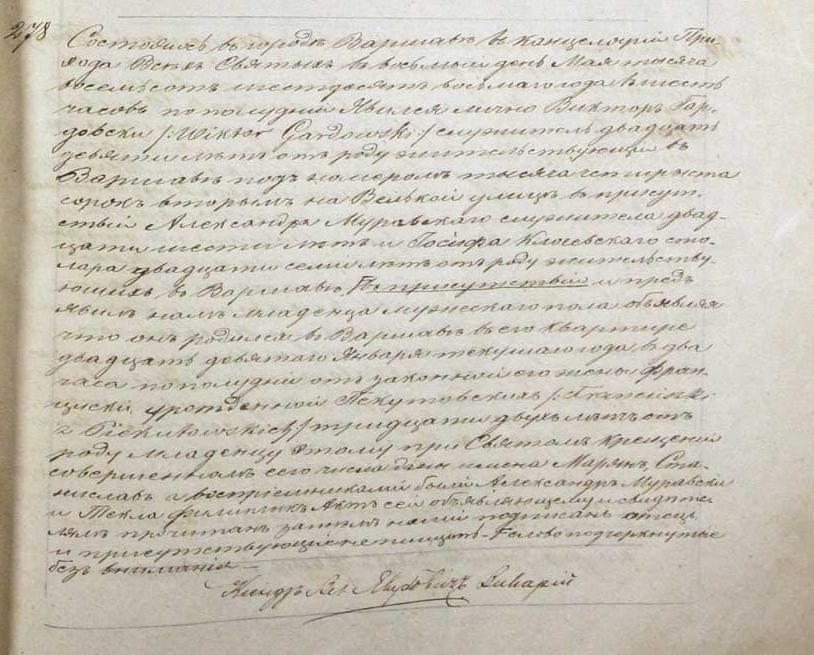 278
Состоялось въ городѣ Варшавѣ въ Канцелярiи При-
хода Всѣхъ Святыхъ въ восьмый день Мая тысяча
восемьсотъ шестдесятъ восьмаго года въ шесть
часовъ по полудни Явился лично Викторъ Гар-
довски /:Wiktor Gardowski:/ служитель двадцать
девяти лѣтъ отъ роду жительствующiй въ
Варшавѣ подъ номеромъ тысяча четыреста
сорокъ вторымъ на Велькой улицѣ въ присут-
ствiи Александра Муравскаго служителя двад-
цати шести лѣтъ и Iосифа Клосевскаго сто-
ляра двадцати семи лѣтъ отъ роду жительству-
ющихъ въ Варшавѣ. Въ присутствiи и предъ
явилъ намъ младенца мужескаго пола объявляя
что онъ родился въ Варшавѣ въ его квартире
двадцать девятого Января текущаго года въ два
часа по полудни отъ законной его жены Фран-
циски урожденной Пекутовскихъ /:Franciszki
z Piekutowskich:/ тридцати двухъ лѣтъ отъ
роду младенцу этому при Святомъ Крещенiи
совершенномъ сего числа даны имена Марянъ, Ста-
ниславъ а воспрiемниками были Александръ Муравски
и Текла Филипякъ Актъ сей объявляющему и свидѣте-
лямъ прочитанъ затѣмъ нами подписанъ отецъ
и присутствующiе не пишутъ - слово подчеркнутые
безъ вниманiя -
Ксендзъ Викарiй